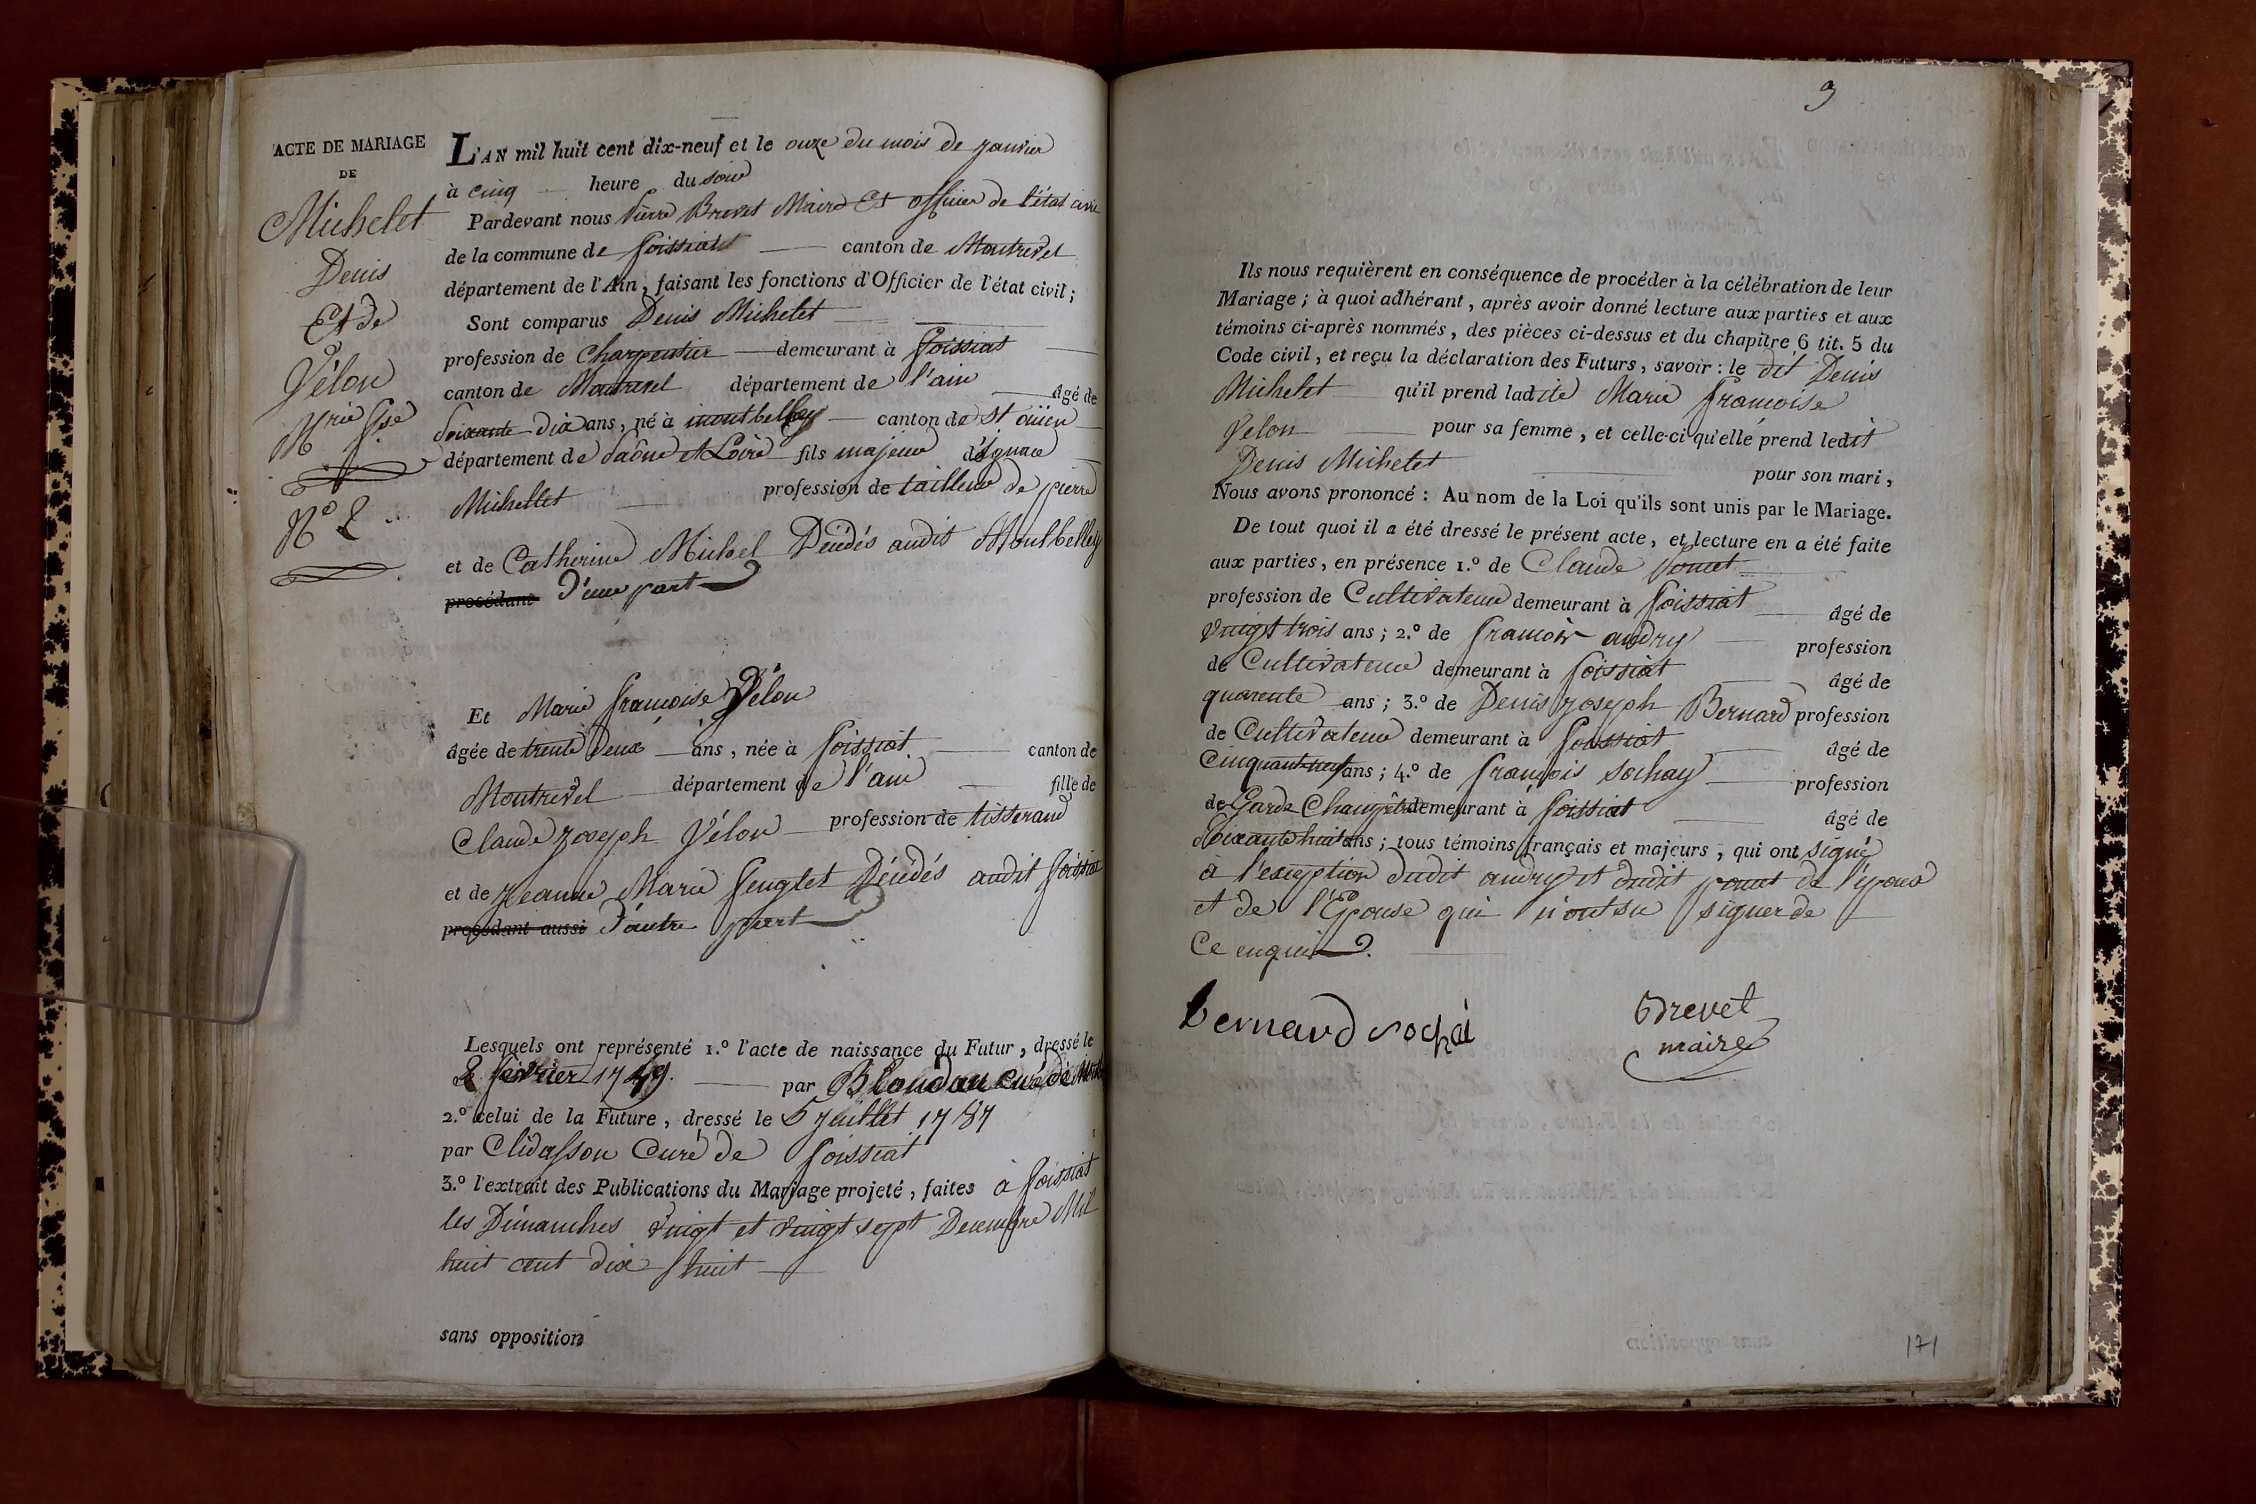 ACTE DE MARIAGE
DE
Michelet
Denis
Et de
Vélon
Mrie fse
N° 2
L'AN mil huit cent dix-neuf et le onze du mois de janvier
à cinq heure du soir
Pardevant nous Pierre Brevet Maire Et officier de l'état civil
de la commune de foissiat canton de Montrevel
département de l'Ain, faisant les fonctions d'Officier de l'état civil;
Sont comparus Denis Michelet
profession de Charpentier demeurant à foissiat
canton de Montrevel département de l'ain âgé de
Soixante Dix ans, né à montbelley canton de St oüen
département de Saône et Loire fils majeur d'ignace
Michellet profession de tailleur de pierre
et de Catherine Michel Décédés audit Montbelley
procédant D'une part
Et Marie françoise Vélon
âgée de trente deux ans, née à foissiat canton de
Montrevel département de l'ain fille de
Claude joseph Vélon profession de tisserand
et de jeanne Marie feuglet Décédés audit foissiat
procédant aussi D'autre part
Lesquels ont représenté 1.° l'acte de naissance du Futur, dressé le
2 février 1749. par Blondan curé de
2.° celui de la Future, dressé le 5 juillet 1787
par Clidasson Curé de foissiat
3.° l'extrait des Publications du Mariage projeté, faites à foissiat
les Dimanches vingt et vingt sept Decembre Mil
huit cent dix huit
sans opposition
9
Ils nous requièrent en conséquence de procéder à la célébration de leur
Mariage; à quoi adhérant, après avoir donné lecture aux parties et aux
témoins ci-après nommés, des pièces ci-dessus et du chapitre 6 tit. 5 du
Code civil, et reçu la déclaration des Futurs, savoir: le dit Denis
Michelet qu'il prend ladite Marie françoise
Velon pour sa femme, et celle-ci qu'elle prend ledit
Denis Michelet pour son mari,
Nous avons prononcé: Au nom de la Loi qu'ils sont unis par le Mariage.
De tout quoi il a été dressé le présent acte, et lecture en a été faite
aux parties, en présence 1.° de Claude Ponet
profession de Cultivateur demeurant à foissiat âgé de
vingt trois ans; 2.° de francois andry profession
de Cultivateur demeurant à foissiat âgé de
quarente ans; 3.° de Denis joseph Bernard profession
de Cultivateur demeurant à foissiat âgé de
Cinquante neuf ans; 4.° de françois sochay profession
de Garde Champêtre demeurant à foissiat âgé de
Soixante huit ans; tous témoins français et majeurs, qui ont signé
à l'exception dudit andry et dudit ponet de l'époux
et de l'Epouse qui n'ont su signer de
Ce enquis.
bernard sochai
Brevet
maire
171